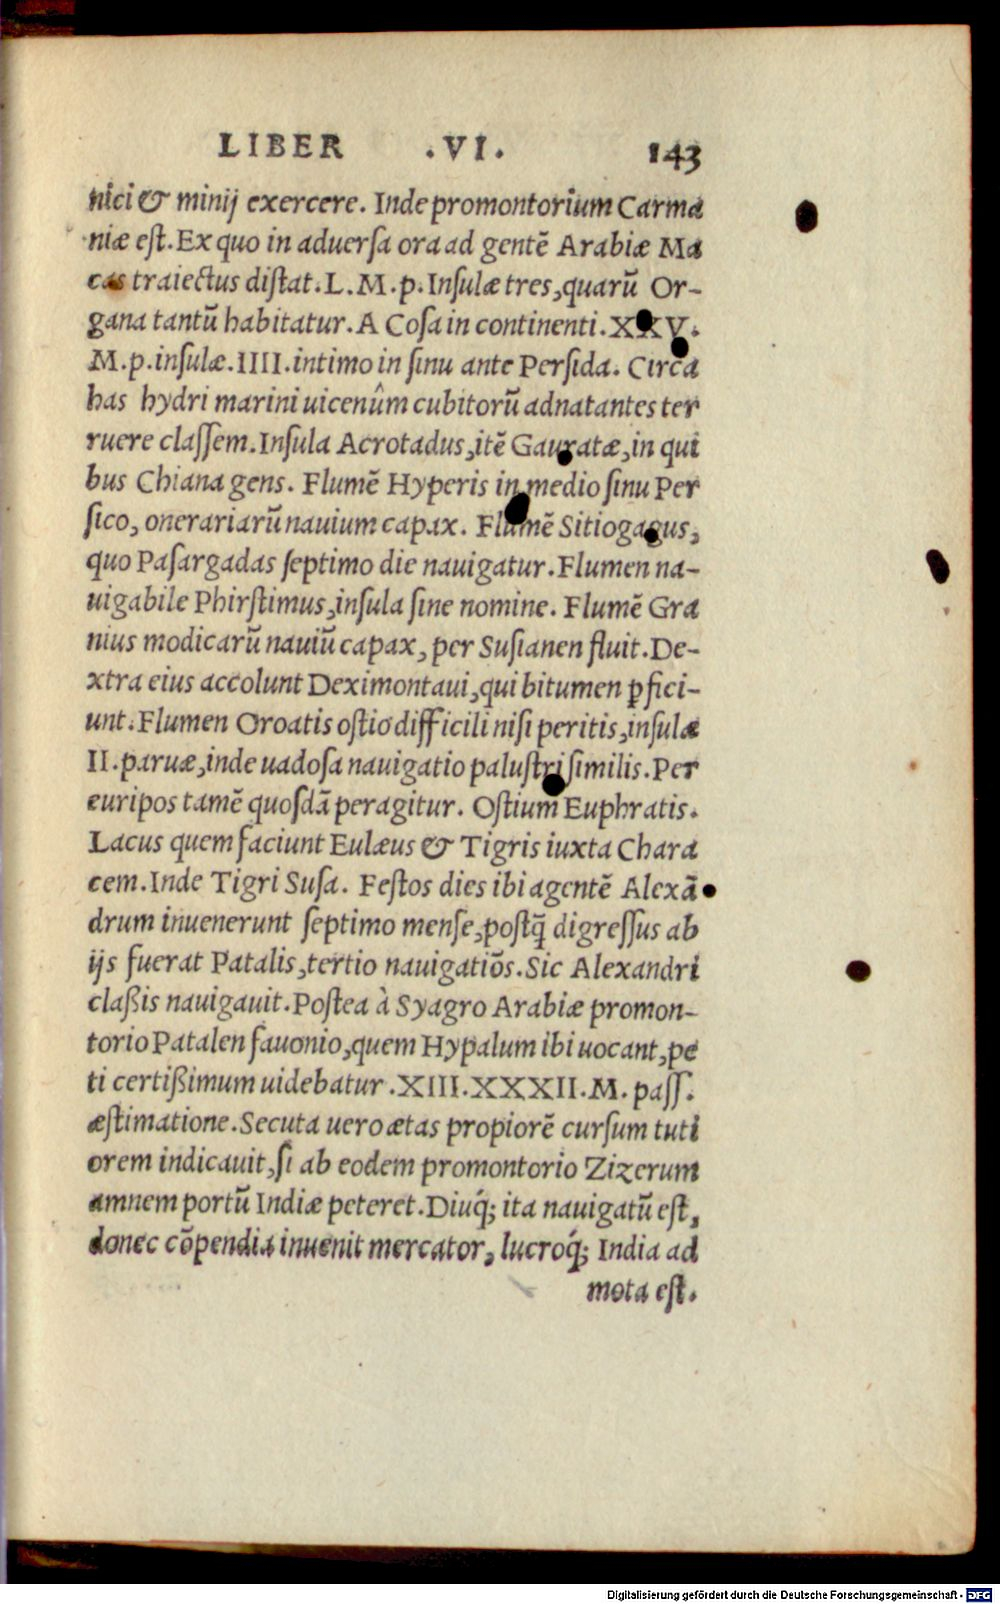 LIBER .VI. 143
nici & minij exercere. Inde promontorium Carma
niæ est. Ex quo in aduersa ora ad gentē Arabiæ Ma
cas traiectus distat. L. M. p. Insulæ tres, quarū Or-
gana tantū habitatur. A Cosa in continenti. XXV.
M. p. insulæ. IIII. intimo in sinu ante Persida. Circa
has hydri marini uicenûm cubitorū adnatantes ter
ruere classem. Insula Acrotadus, itē Gauratæ, in qui
bus Chiana gens. Flumē Hyperis in medio sinu Per
sico, onerariarū nauium capax. Flumē Sitiogagus,
quo Pasargadas septimo die nauigatur. Flumen na-
uigabile Phirstimus, insula sine nomine. Flumē Gra
nius modicarū nauiū capax, per Susianen fluit. De-
xtra eius accolunt Deximontaui, qui bitumen ꝑfici-
unt. Flumen Oroatis ostio difficili nisi peritis, insulæ
II. paruæ, inde uadosa nauigatio palustri similis. Per
euripos tamē quosdā peragitur. Ostium Euphratis.
Lacus quem faciunt Eulæus & Tigris iuxta Chara
cem. Inde Tigri Susa. Festos dies ibi agentē Alexā
drum inuenerunt septimo mense, postq̄ digressus ab
ijs fuerat Patalis, tertio nauigatiōs. Sic Alexandri
claßis nauigauit. Postea à Syagro Arabiæ promon-
torio Patalen fauonio, quem Hypalum ibi uocant, pe
ti certißimum uidebatur. XIII. XXXII. M. pass.
æstimatione. Secuta uero ætas propiorē cursum tuti
orem indicauit, si ab eodem promontorio Zizerum
amnem portū Indiæ peteret. Diuq́; ita nauigatū est,
donec cōpendia inuenit mercator, lucroq́; India ad
mota est.
Digitalisierung gefördert durch die Deutsche Forschungsgemeinschaft - DFG